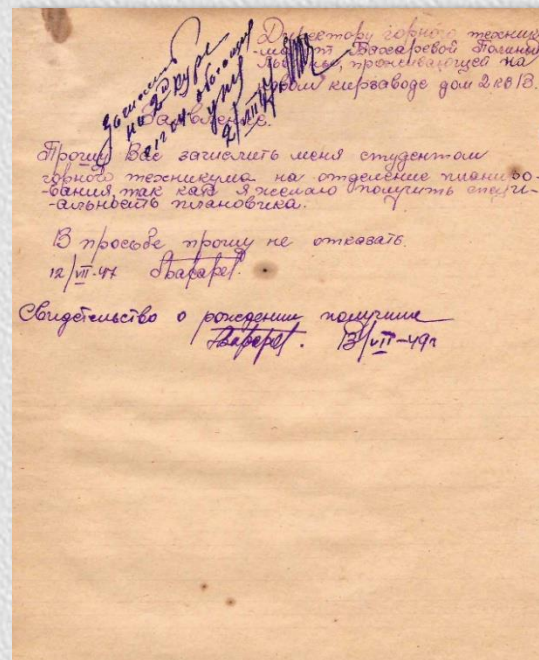 Директору горного техник-
-ма от Бахаревой Полины
проживающей на
кирзаводе дом 2 кв 13.
Зачислить
на 2 курс
Заявление.
Прошу Вас зачислить меня студентом
горного техникума на отделение планиро-
-вания, так как я желаю получить специ-
-альность плановика.
В просьбе прошу не отказать.
12/VII-47
Свидетельство о рождении получила
13/VII-49г